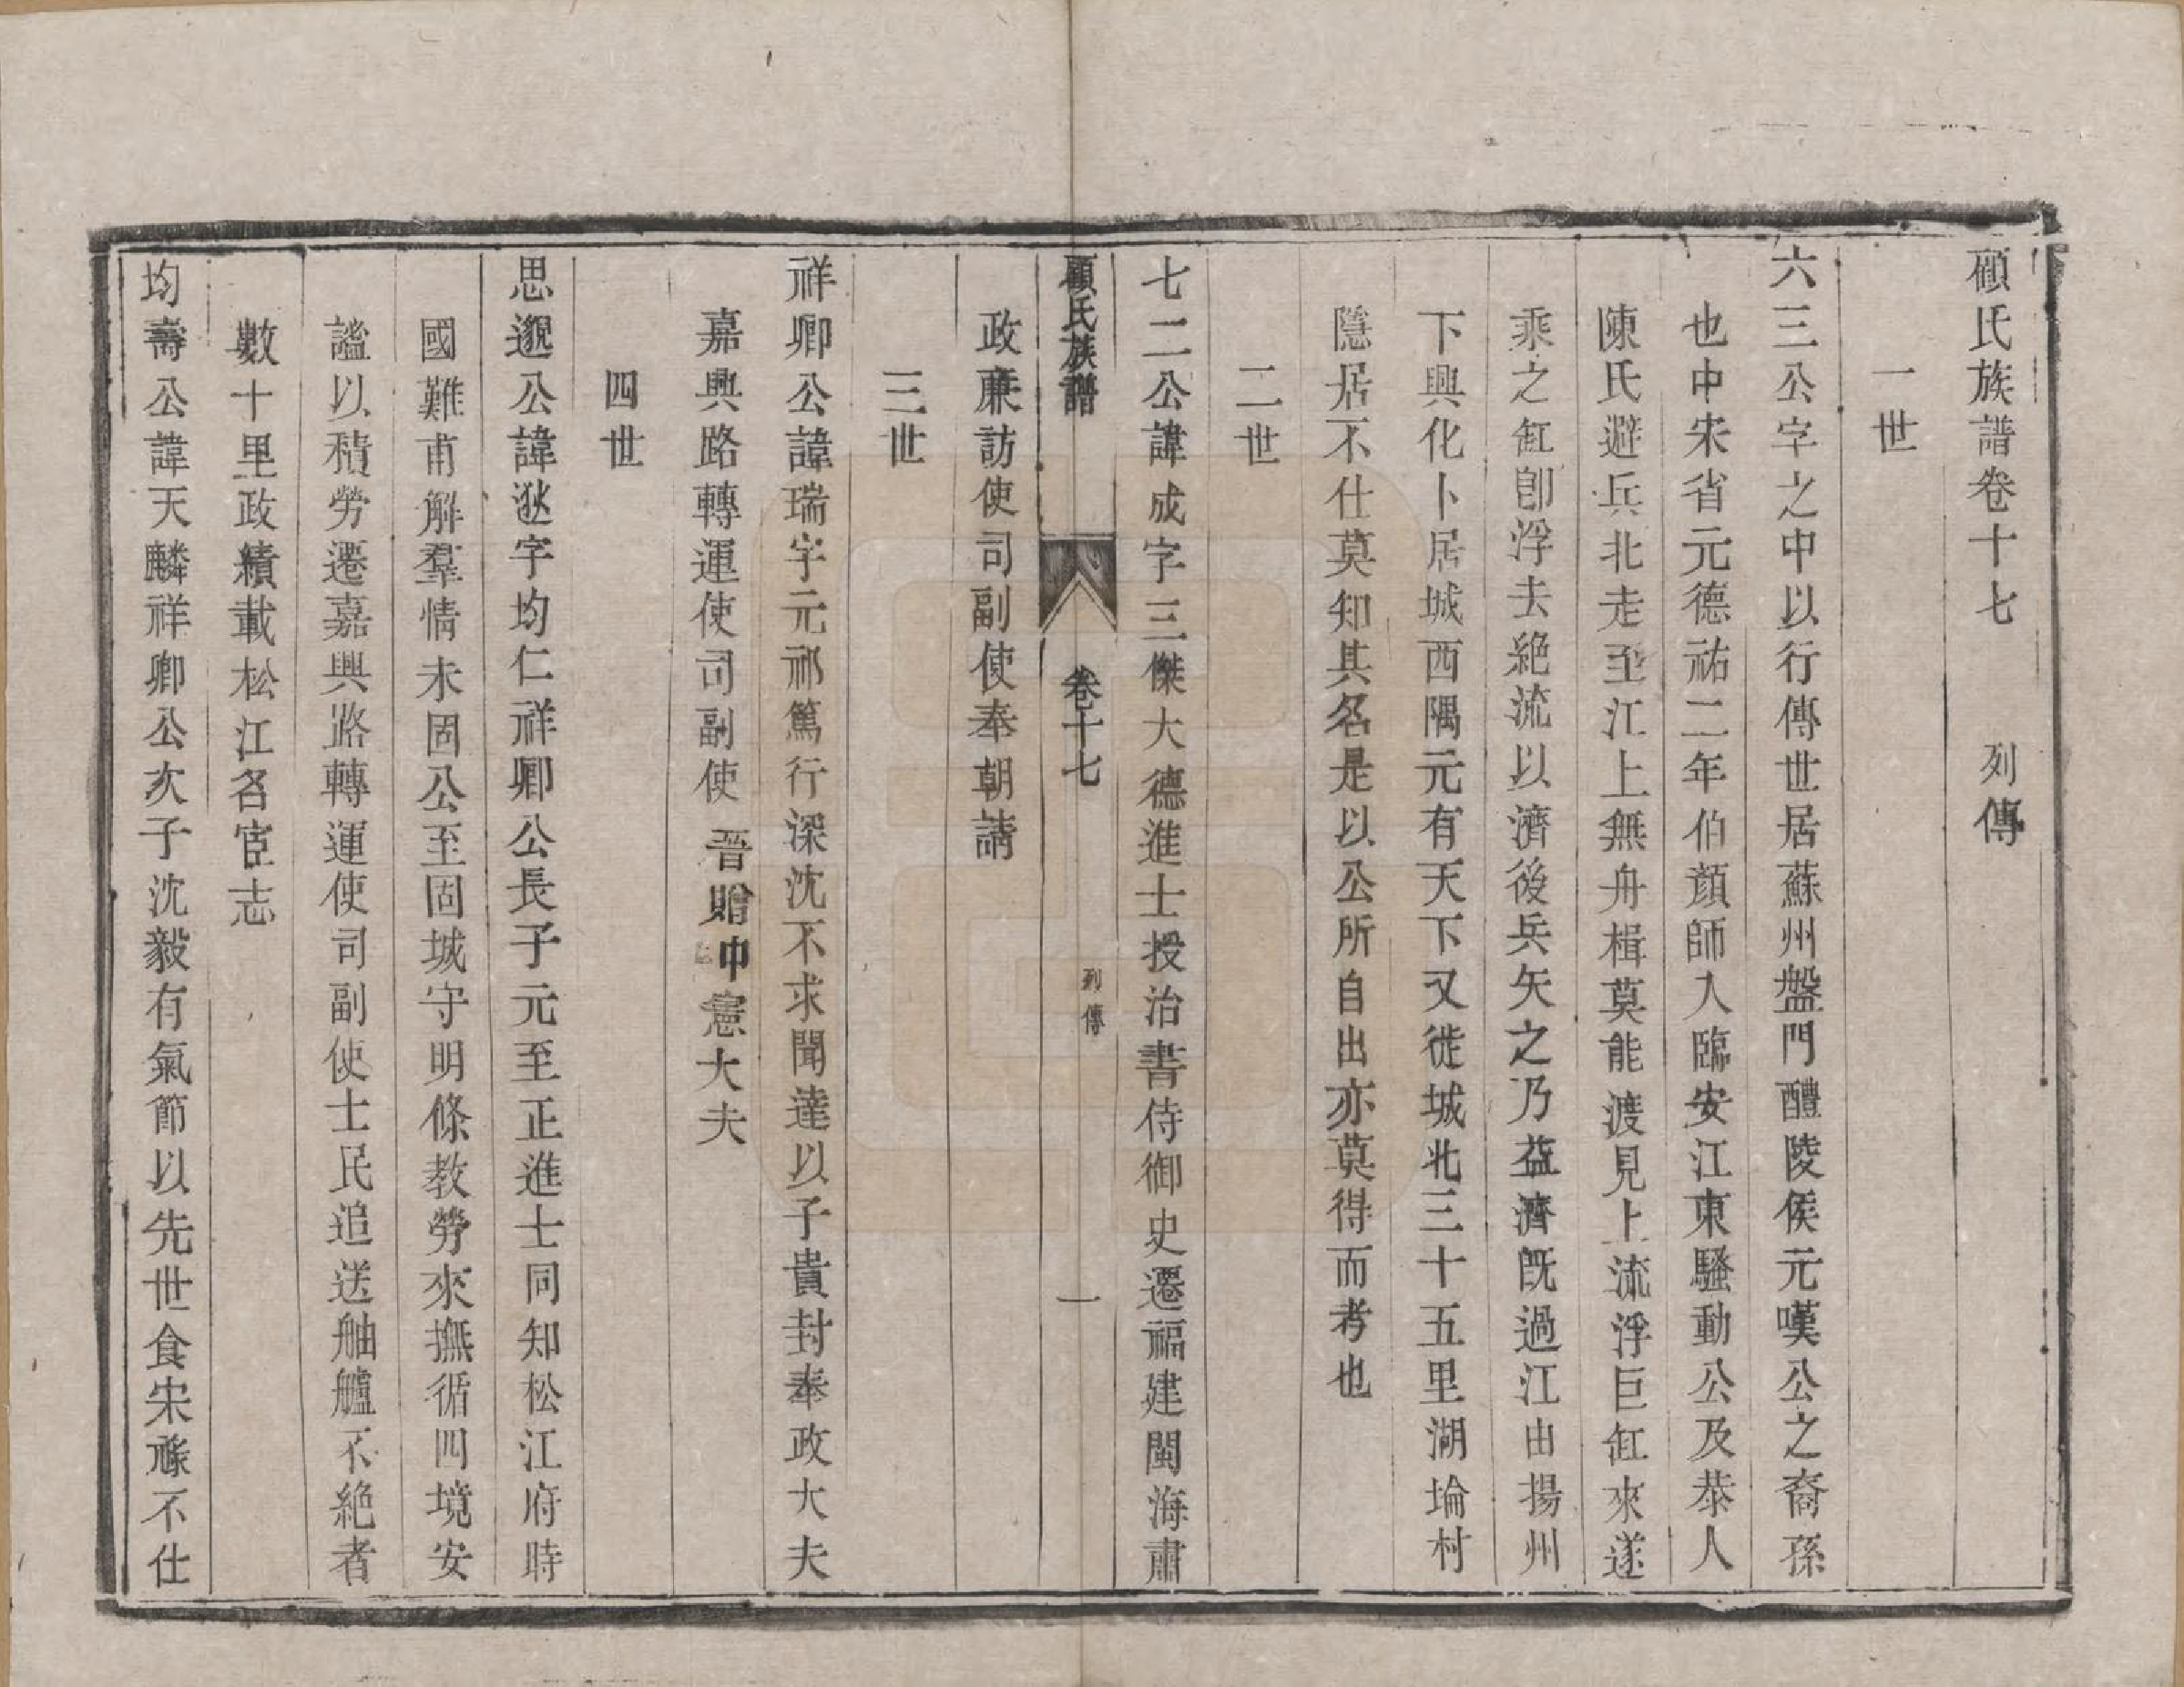 顧氏族譜卷十七　列傳
一世
六三公字之中以行傳世居蘇州盤門醴陵侯元嘆公之裔孫
也中宋省元德祐二年伯顏師入臨安江東騷動公及恭人
陳氏避兵北走至江上無舟楫莫能渡見上流浮巨缸來遂
乘之缸卽浮去絕流以濟後兵矢之乃益濟旣過江由揚州
下興化卜居城西隅元有天下又徙城北三十五里湖埨村
隱居不仕莫知其名是以公所自出亦莫得而考也
二世
七二公諱成字三傑大德進士授治書侍御史遷福建閩海肅
顧氏族譜　卷十七　列傳　一
政廉訪使司副使奉朝請
三世
祥卿公諱瑞字元祁篤行深沈不求聞達以子貴封奉政大夫
嘉興路轉運使司副使晉贈中憲大夫
四世
思邈公諱逖字均仁祥卿公長子元至正進士同知松江府時
國難甫解羣情未固公至固城守明條教勞來撫循四境安
謐以積勞遷嘉興路轉運使司副使士民追送舳艫不絕者
數十里政績載松江名宦志
均壽公諱天麟祥卿公次子沈毅有氣節以先世食宋祿不仕